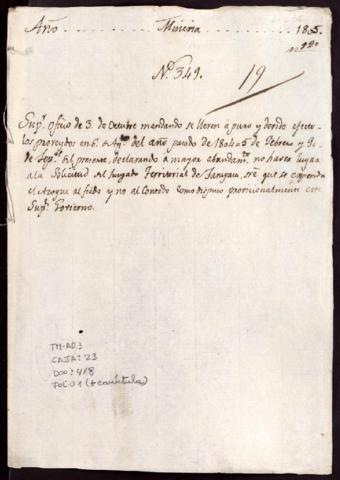 Año . . . . . . . . . . Mineria . . . . . . . . . 1805.
N.º 349.
19
Sup.r oficio de 3. de Octubre mandando se lleven à puro y devido efecto
los proveydos en 6. de Ag.to del año pasado de 1804 o 5 de Febrero y
de Sep.re del presente, declarando à mayor abundam.to no haver lugar
a la Solicitud del Juzgado Territorial de Tarapaca, sre que se expenda
el Azogue al fiado y no al Contado como dispuso provicionalmente este
Sup.r Govierno.
TM-AD3
CAJA: 23
DOC: 418
FOL: 01 (+ carátula)